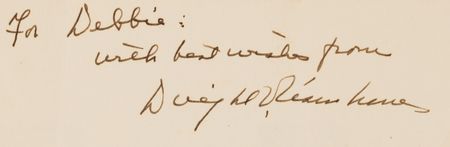 For Debbie:
with best wishes from
Dwight D Eisenhower